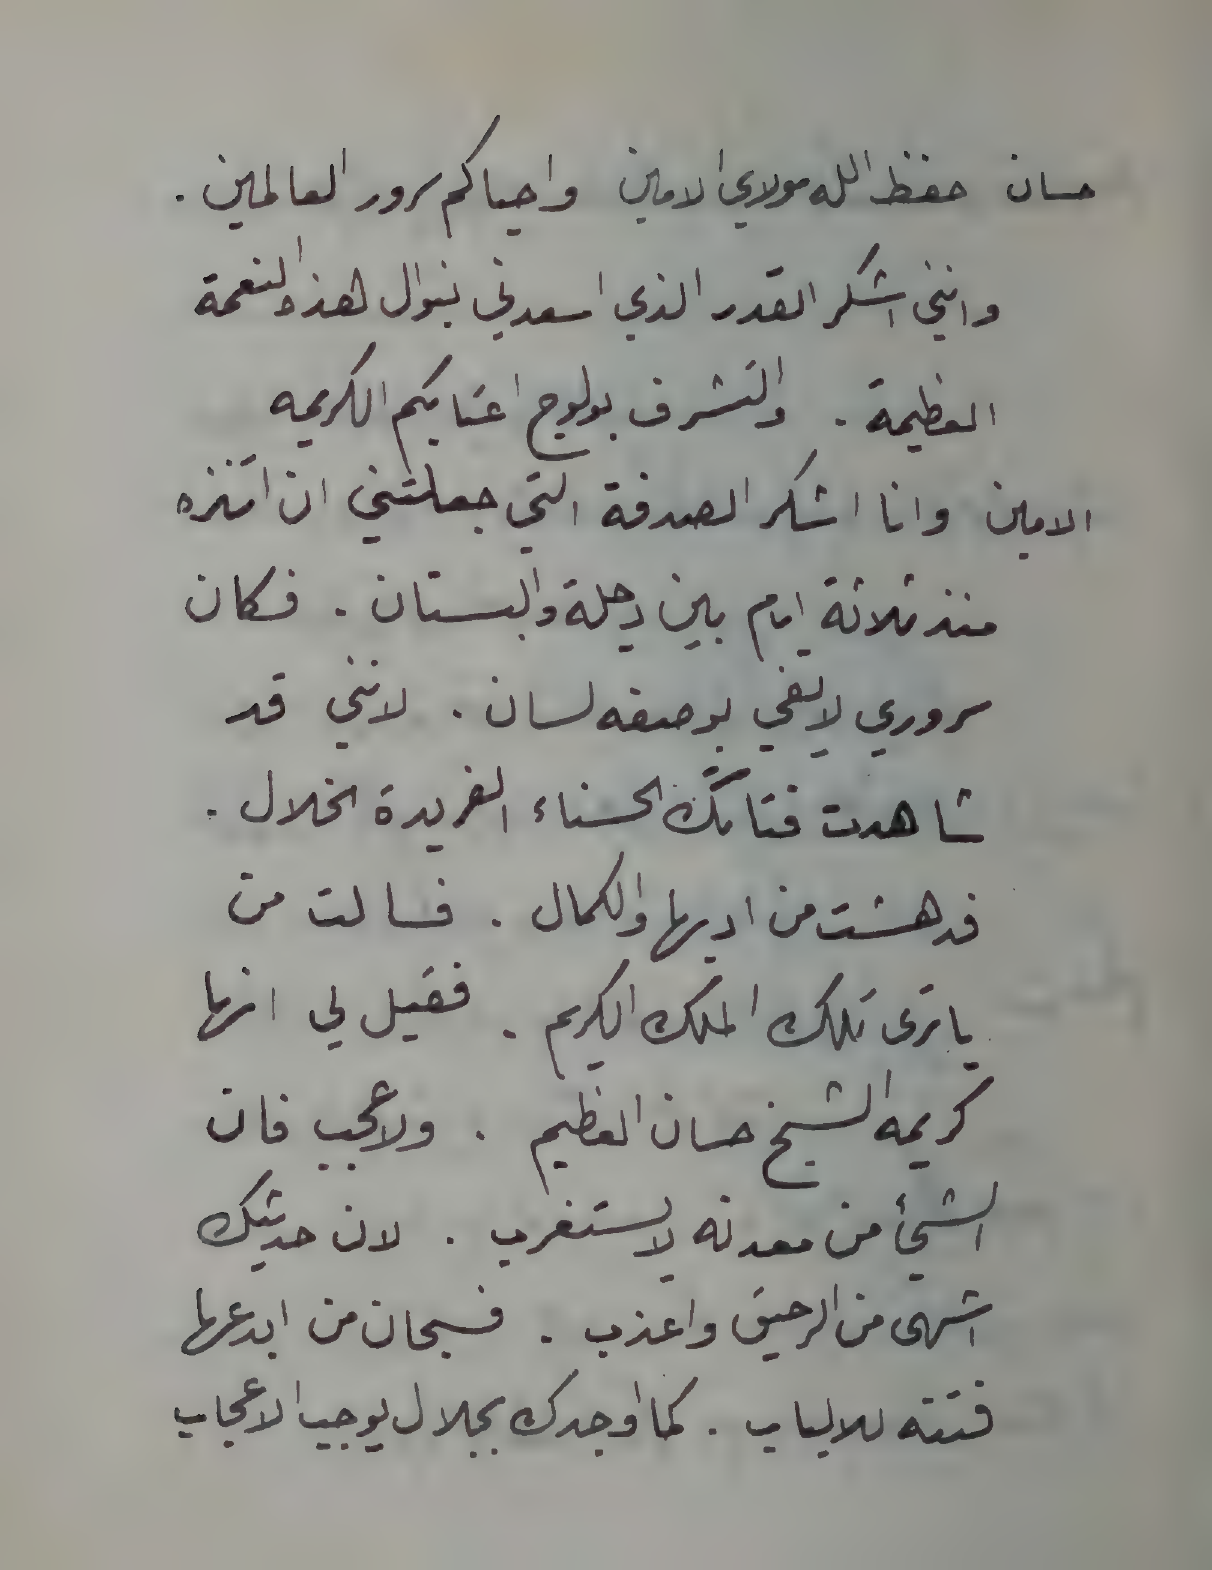 حسان حفظ الله مولاي الامين واحياكم سرور العالمين .
وانني اشكر القدر الذي اسعدني بنوال هذه النعمة
العظيمة . والتشرف بولوج اعتابكم الكريمه
الامين وانا اشكر الصدفة التي جعلتني ان اتنزه
منذ ثلاثة ايام بين دجلة والبستان . فكان
سروري لا يفي بوصفه لسان . لانني قد
شاهدت فتاتك الحسناء الفريدة الخلال .
فدهشت من ادبها والكمال . فسالت من
يا ترى تلك الملك الكريم . فقيل لي انها
كريمه الشيخ حسان العظيم . ولا عجب فان
الشيئ من معدنه لا يستغرب . لان حديثك
اشهى من الرحيق واعذب . فسبحان من ابدعها
فتنته للالباب . كما اوجدك بجلال يوجب الاعجاب